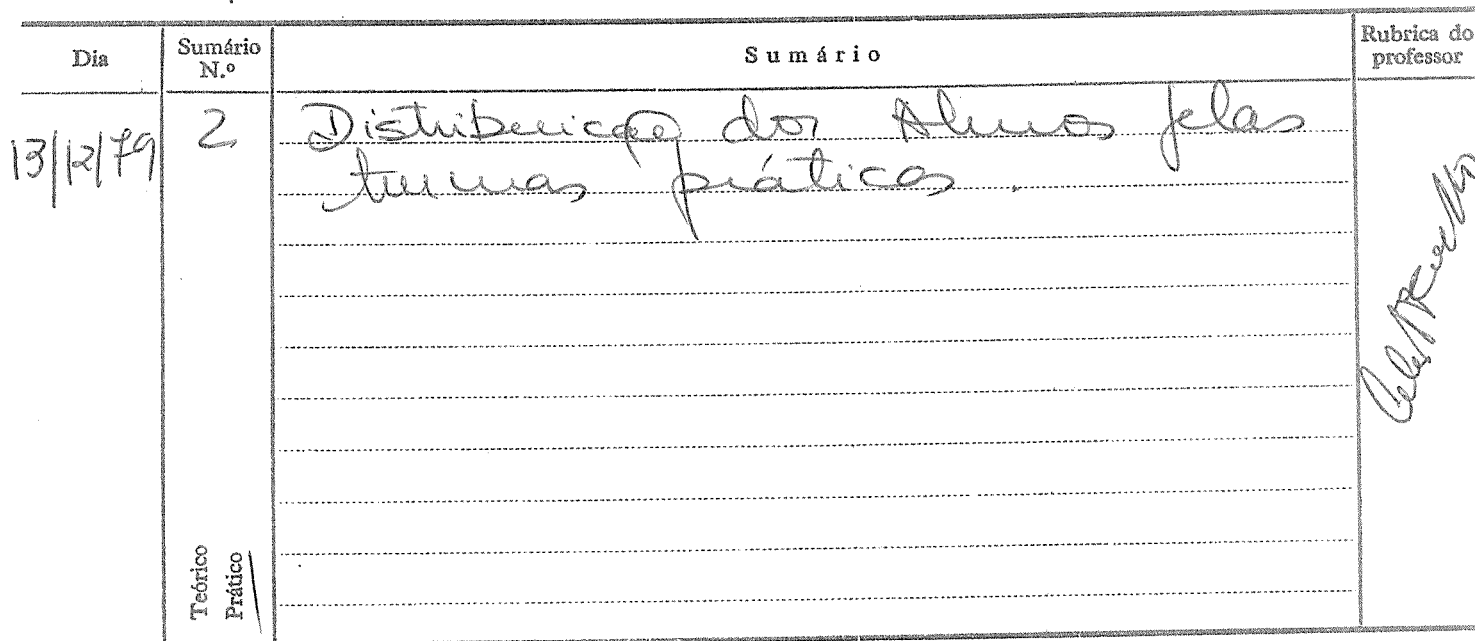 Dia
Sumário
N.º
Sumário
Rubrica do
professor
13/12/79
2
Distribuição dos Alunos pelas
turmas práticas.
Teórico
Prático